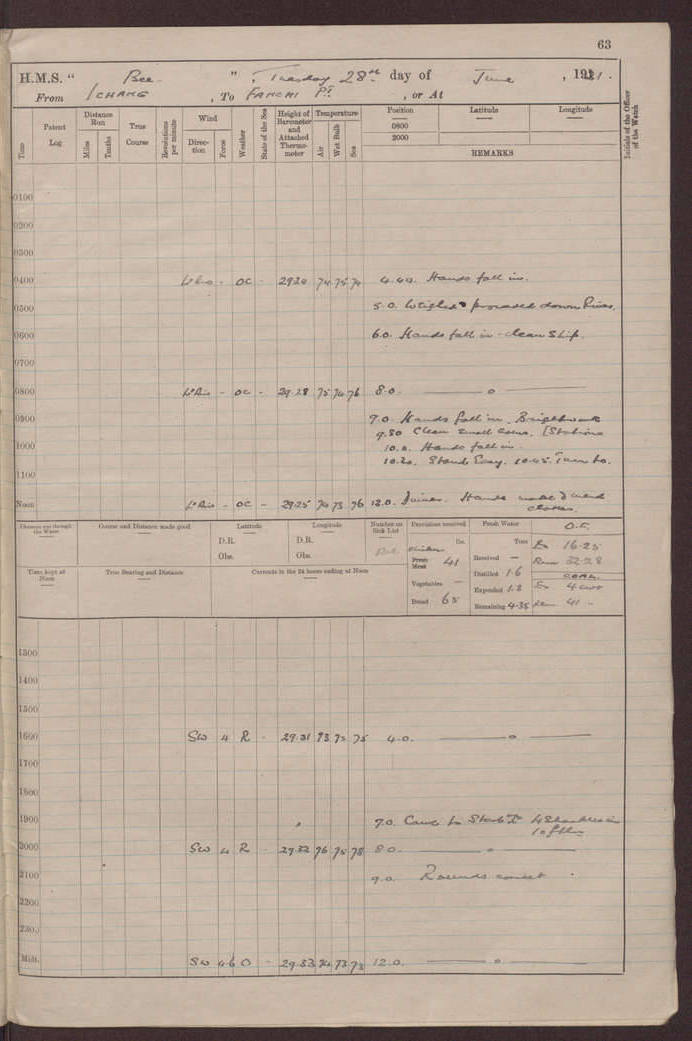 63
H.M.S. " Bee " , Tuesday 28th day of June , 1921.
From ICHANG , To FANCAI Pt , or At
Time
Patent Log
Distance Run
Miles
Tenths
True Course
Revolutions per minute
Wind
Direction
Force
Weather
State of the Sea
Height of Barometer and Attached Thermometer
Temperature
Air
Wet Bulb
Sea
Position
0800
2000
Latitude
Longitude
REMARKS
Initials of the Officer of the Watch
0100
0200
0300
0400 - OC - 29.20 74 75 74 4.40. Hands fall in.
0500 5.0. Weighed & proceeded down River.
0600 6.0. Hands fall in - clean Ship.
0700
0800 - OC - 29.28 75 74 76 8.0. o
0900 9.0. Hands fall in. Brightwork
9.30 Clean small arms. [Stations
1000 10.0. Hands fall in.
10.20. Stand Easy. 10.45. Turn to.
1100
Noon - OC - 29.25 74 73 76 12.0. Dinner. Hands make & mend
clothes.
Distance run through the Water
Course and Distance made good
Latitude
D.R.
Obs.
Longitude
D.R.
Obs.
Number on Sick List
Provisions received
lbs.
Fresh Meat 41
Vegetables —
Bread 65
Fresh Water
Tons
Received —
Distilled 1.6
Expended 1.8
Remaining 4.35
O.F.
Ex 16.25
Rem 52.28
COAL
Ex 4 cwt
Rem 41
Time kept at Noon
True Bearing and Distance
Currents in the 24 hours ending at Noon
1300
1400
1500
1600 SW 4 R - 29.31 73 72 75 4.0. o
1700
1800
1900 7.0. Came to Starbd 4 Shackles in
10 fths
2000 SW 4 R - 29.32 76 75 78 8.0. o
2100 9.0. Rounds correct.
2200
2300
Midt. SW 4.6 O - 29.33 74 73 73 12.0. o